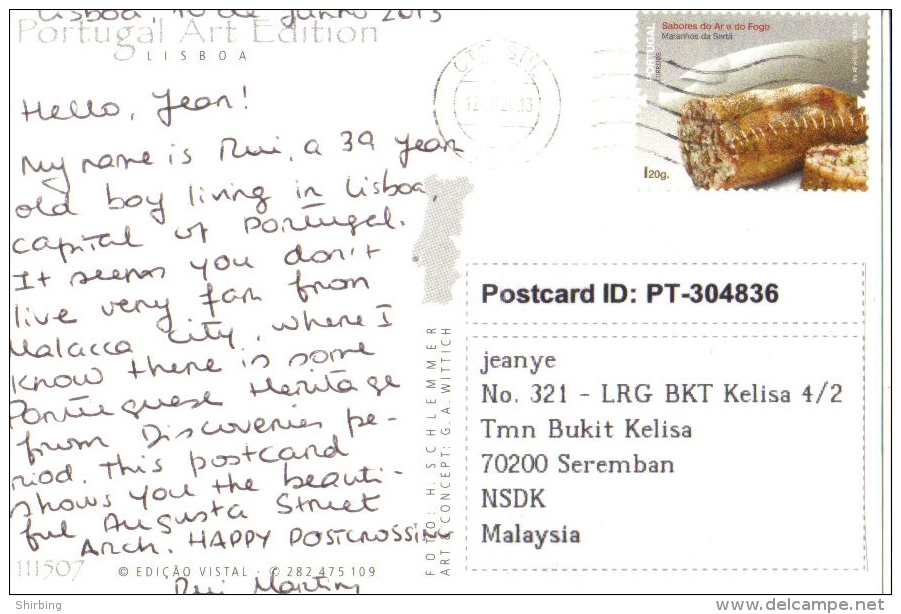 Lisboa, 10 de Junho 2013
Portugal Art Edition
LISBOA
Hello, Jean!
My name is Rui, a 39 year
old boy living in Lisboa,
capital of Portugal.
It seems you don't
live very far from
Malacca City, where I
know there is some
Portuguese Heritage
from Discoveries pe-
riod. This postcard
shows you the beauti-
ful Augusta Street
Arch. HAPPY POSTCROSSING
Rui Martins
111507
© EDIÇÃO VISTAL · © 282 475 109
FOTO: H. SCHLEMMER
ART & CONCEPT: G.A. WITTICH
Sabores do Ar e do Fogo
Maranhos da Sertã
PORTUGAL
CORREIOS
I20g.
Postcard ID: PT-304836
jeanye
No. 321 - LRG BKT Kelisa 4/2
Tmn Bukit Kelisa
70200 Seremban
NSDK
Malaysia
Shirbing
delcampe.net